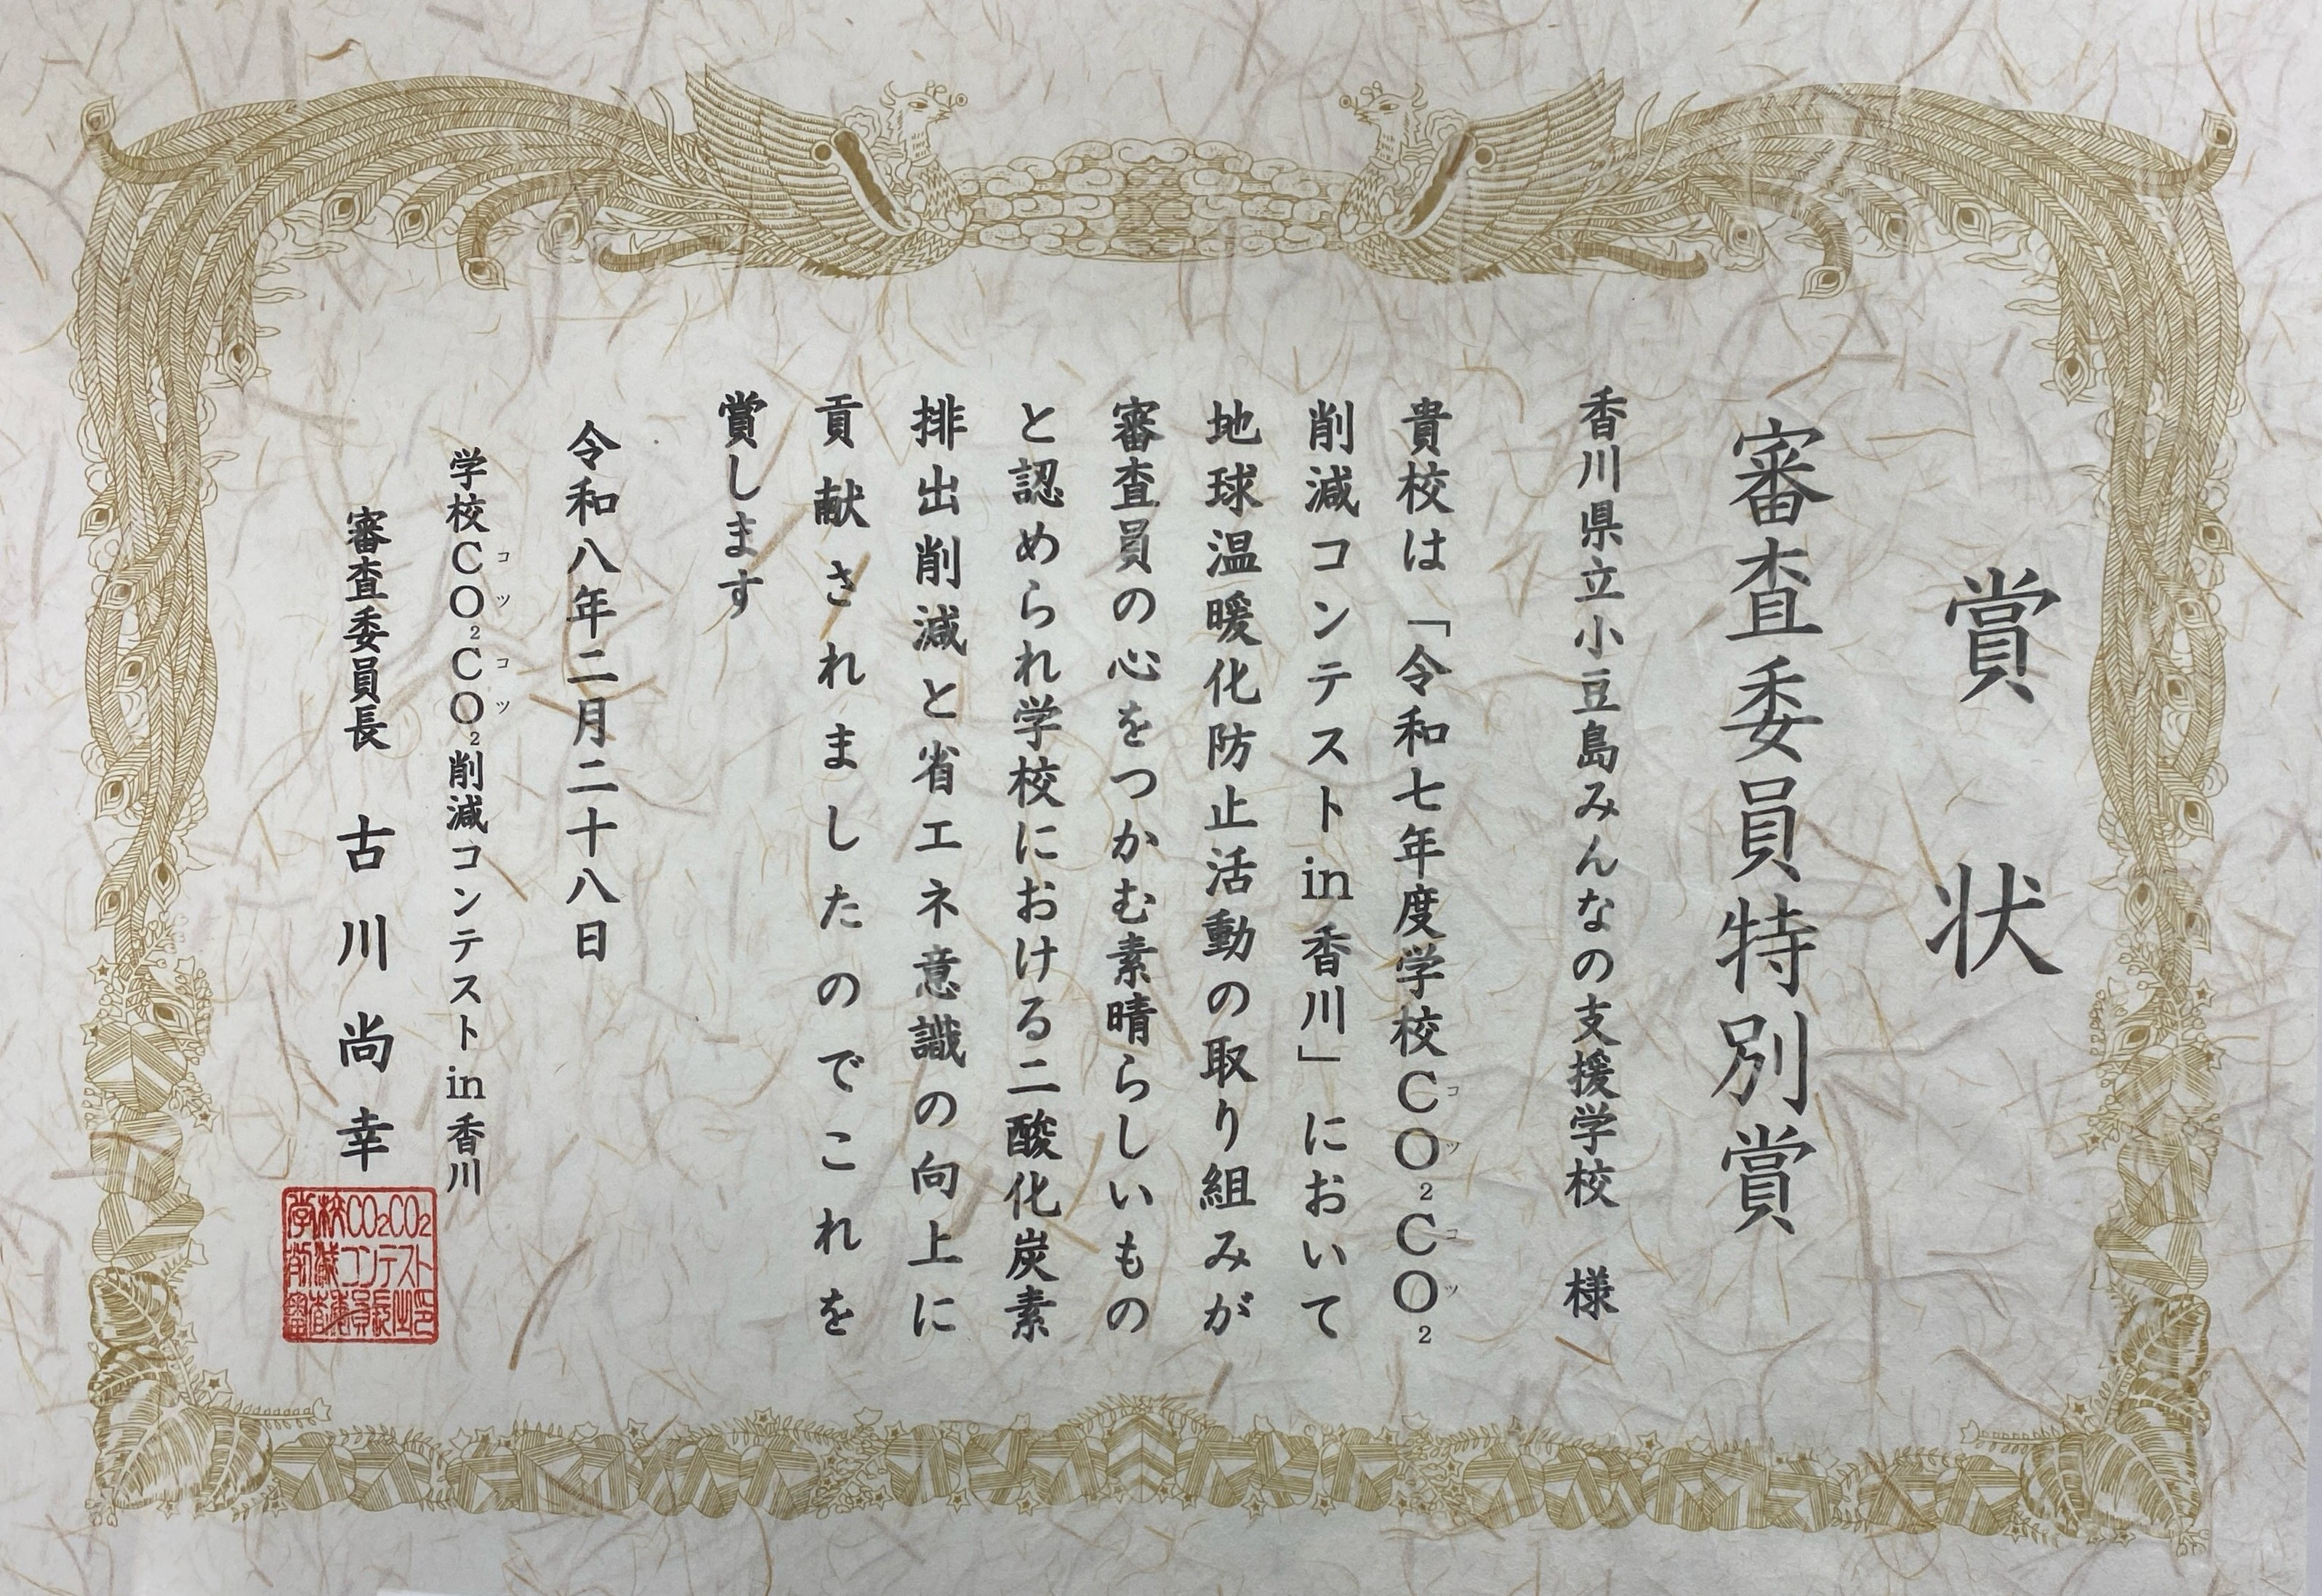 賞状
審査委員特別賞
香川県立小豆島みんなの支援学校 様
貴校は「令和七年度学校CO₂CO₂
コツコツ
削減コンテストin香川」において
地球温暖化防止活動の取り組みが
審査員の心をつかむ素晴らしいもの
と認められ学校における二酸化炭素
排出削減と省エネ意識の向上に
貢献されましたのでこれを
賞します
令和八年二月二十八日
学校CO₂CO₂削減コンテストin香川
コツコツ
審査委員長 古川尚幸
学校CO₂CO₂
削減コンテスト
審査委員長之印